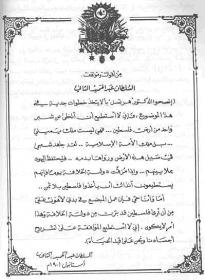 من أقواله ومواقفه
السلطان عبد الحميد الثاني
( انصحوا الدكتور هرتسل بألا يتخذ خطوات جدية في
هذا الموضوع ، فإني لا أستطيع أن أتخلى عن شبر
واحد من أرض فلسطين .. فهي ليست ملك يميني
.. بل ملك الأمة الإسلامية .. لقد جاهد شعبي
في سبيل هذه الأرض ورواها بدمه .. فليحتفظ اليهود
بملايينهم .. وإذا مزقت دولة الخلافة يوما فإنهم
يستطيعون آنذاك أن يأخذوا فلسطين بلا ثمن ..
أما وأنا حي فإن عمل المبضع في بدني لأهون علي
من أن أرى فلسطين قد بترت من دولة الخلافة وهذا
أمر لا يكون .. إني لا أستطيع الموافقة على تشريح
أجسادنا ونحن على قيد الحياة.)
السلطان عبد الحميد الثاني
١٩٠١م